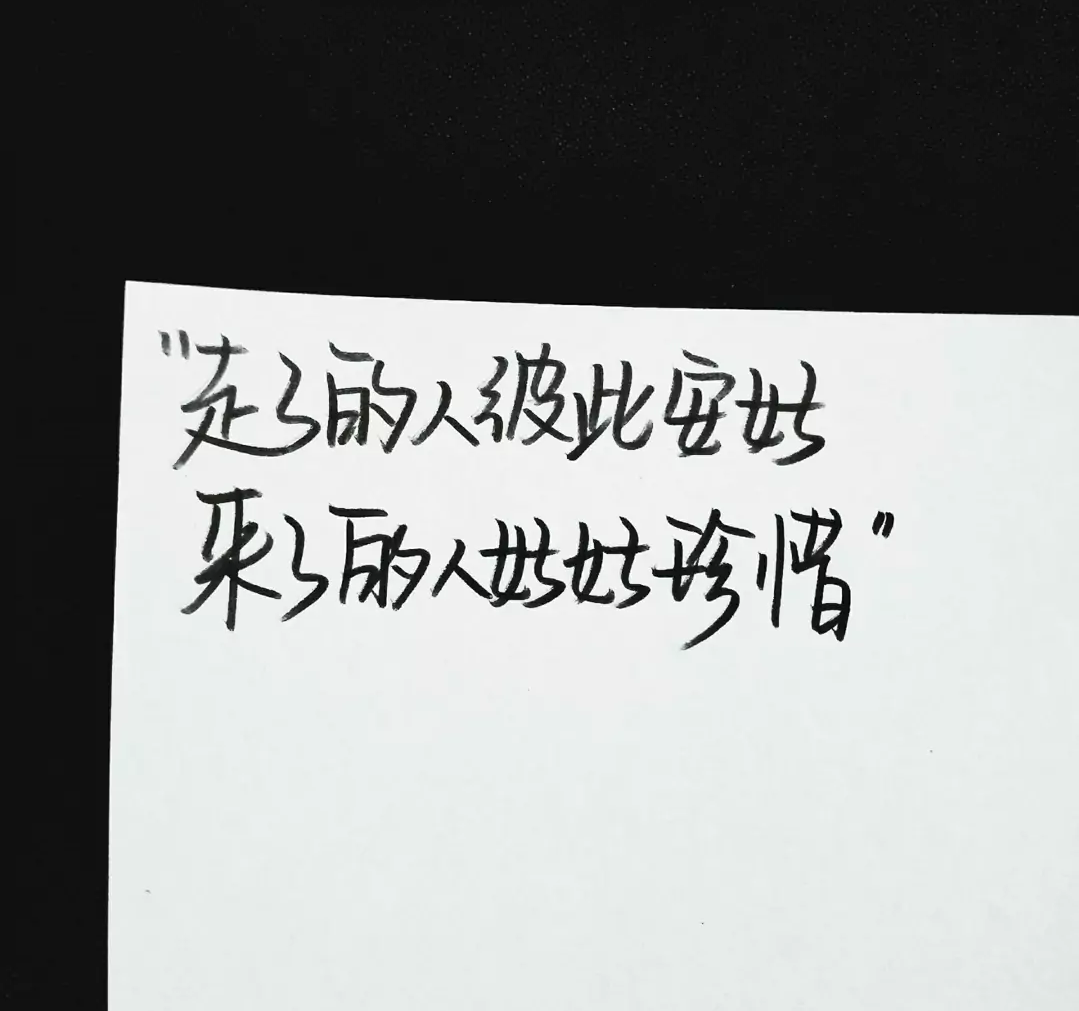 "走了的人彼此安好
来了的人好好珍惜"